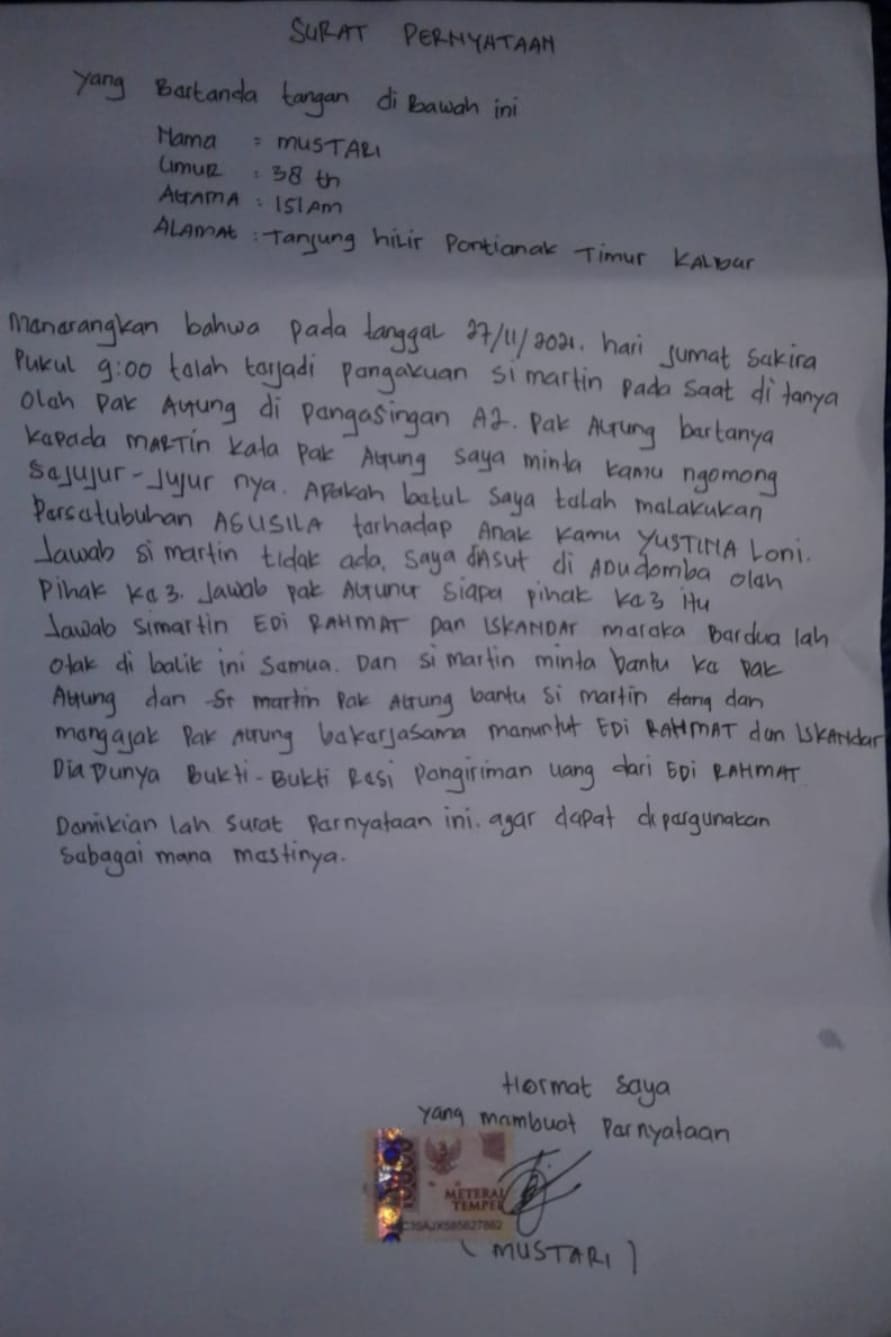 SURAT PERNYATAAN
Yang Bartanda tangan di Bawah ini
Nama : MUSTARI
Umur : 38 th
AGAMA : ISlAm
ALAMAt : Tanjung hilir Pontianak Timur KALbar
Manarangkan bahwa pada tanggal 27/11/2021. hari Jumat Sakira
Pukul 9:00 talah tarjadi pangakuan si martin pada saat di tanya
Olah Pak AGung di pangasingan A2. Pak AGung bartanya
Kapada MARTin kata Pak AGung saya minta kamu ngomong
Sajujur-Jujur nya. Apakah batul Saya talah malakukan
Parsatubuhan ASUSILA tarhadap Anak Kamu YUSTINA Loni.
Jawab si martin tidak ada, saya diAsut di ADudomba olah
Pihak Ka 3. Jawab pak AGung Siapa pihak ka3 itu
Jawab Simartin EDi RAHMAT Dan ISKANDAR maraka Bardua lah
Otak di balik ini Samua. Dan si martin minta bantu ka pak
AGung dan St martin Pak AGung bantu Si martin dan
mangajak Pak AGung bakarjasama manuntut EDi RAHMAT dan ISKANdar
Dia Punya Bukti-Bukti Rasi Pangiriman uang dari EDi RAHMAT
Damikian lah Surat Parnyataan ini. agar dapat di pargunakan
Sabagai mana mastinya.
Hormat Saya
yang mambuat Parnyataan
10000
METERAI
TEMPEL
( MUSTARI )